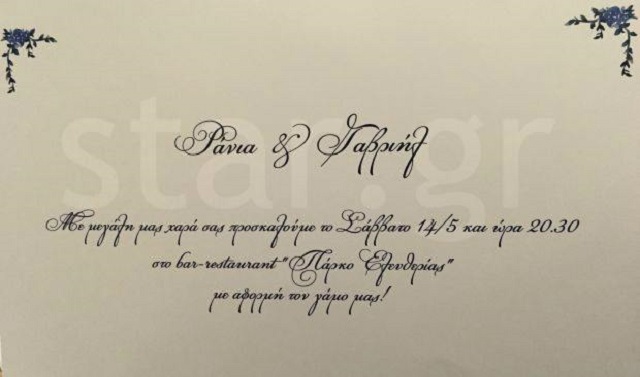 Ράνια & Γαβριήλ
star.gr
Με μεγάλη μας χαρά σας προσκαλούμε το Σάββατο 14/5 και ώρα 20.30
στο bar-restaurant "Πάρκο Ελευθερίας"
με αφορμή τον γάμο μας!